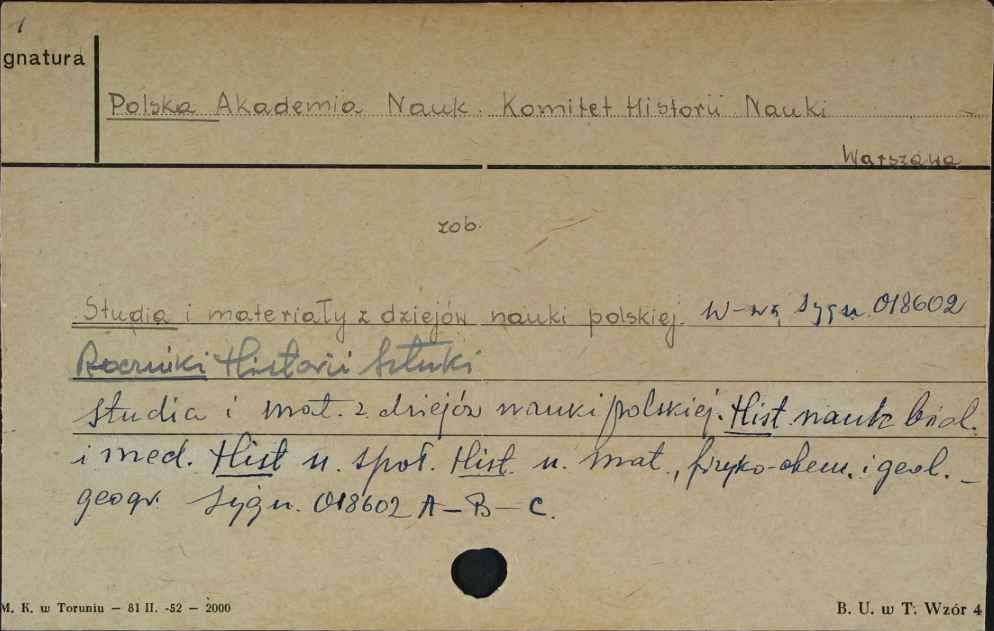 gnatura
Polska Akademia Nauk. Komitet Historii Nauki
Warszawa
zob.
Studia i materiały z dziejów nauki polskiej. W-wą Sygn. 018602
Roczniki Historii Sztuki
Studia i mat. z dziejów nauki polskiej. Hist nauk biol.
i med. Hist n. społ. Hist. n. mat., fizyko-chem. i geol. –
geogr. Sygn. 018602 A – B – C.
M. K. w Toruniu – 81 II. -52 – 2000
B. U. w T. Wzór 4